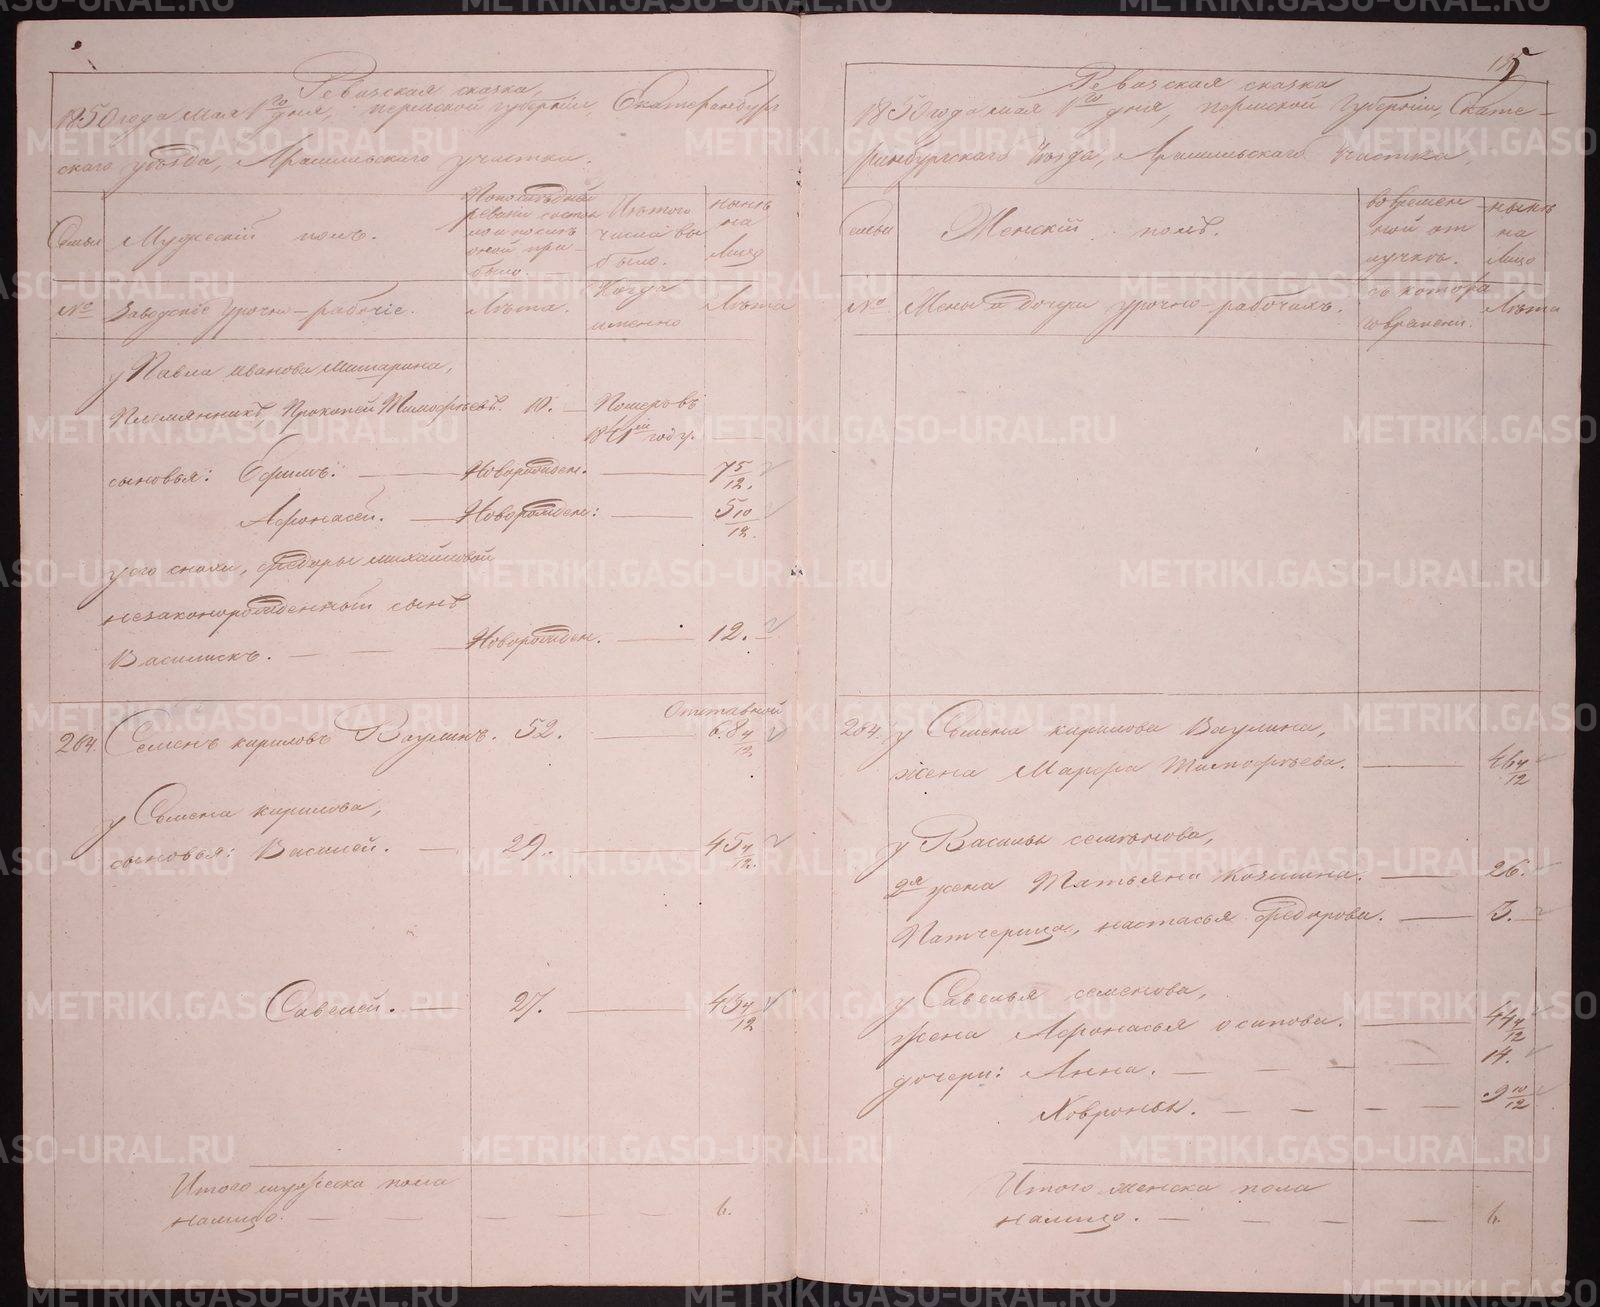 Ревизская сказка,
1850 года Мая 1го дня, пермской губернiи, Екатеринбург
скаго уѣзда, Арамильскаго участка.
Семьи
Мужескiй полъ.
По последней
ревизiи состоя
ло и послѣ
оной при
было.
Изъ того
числа вы
было.
нынѣ
на
лицо
№
Заводскiе урочно-рабочiе.
Лѣта.
Когда
именно
Лѣта
у Павла иванова
Племянникъ, Прокопей Тимофѣевъ. 10. — Померъ въ
1841м году.
сыновья: Ефимъ. — Новорожден. — 7 5/12.
Афонасей. — Новорожден: — 5 10/12.
у его снохи, Федоры михайловой
незаконорожденный сынъ
Василискъ. — — Новорожден. — 12. —
Отставной
264. Семенъ кириловъ Ваулинъ. 52. — 68 4/12
у Семена кирилова,
сыновья: Василей. — 29. — 45 4/12.
Савелей. — 27. — 43 4/12
Итого мужеска пола
налицо. — — — — — 6.
Ревизская сказка
1850 года мая 1го дня, пермской Губернiи, Екате-
ринбургскаго Уѣзда, Арамильскаго Участка,
Семьи
Женскiй полъ.
во времен
ной от
лучкѣ.
нынѣ
на
лицо
№
Жены и дочери урочно-рабочихъ.
съ котора
го времени.
Лѣта
264. у Семена кирилова Ваулина,
жена Марфа Тимофѣева. — 46 4/12
у Василья семенова,
2я жена Татьяна Козмина. — 26.
Патчерица, настасья Федорова. — 3.
у Савелья семенова,
жена Афонасья осипова. — 44 4/12
дочери: Анна. — — — — 14.
Ховронья. — — — — 9 10/12
Итого женска пола
налицо. — — — — 6.
METRIKI.GASO-URAL.RU